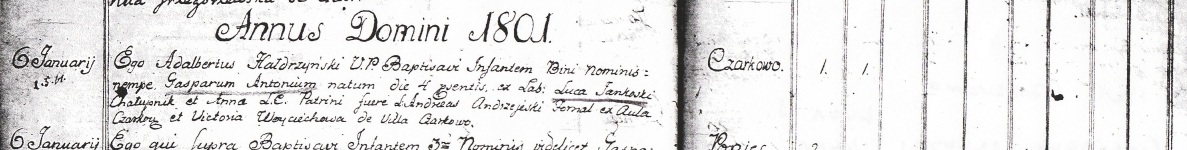 Annus Domini 1801.
6 Januarij Ego Adalbertus Kałdrzyński V.P. Baptisavi Infantem Bini Nominis: Czarkowo. 1. 1.
nempe Gasparum Antonium natum die 4 psentis, ex Lab: Luca Jankoski
Chałupnik et Anna L.C. Patrini fuere L. Andreas Andrzejeski Fornal ex Aula
et Victoria Woyciechowa de Villa Czarkowo.
6 Januarij Ego qui supra Baptisavi Infantem Nominis videlicet